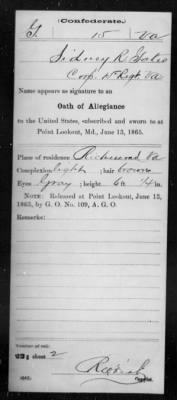 (Confederate.)
G 15 Va
Sidney R. Gates
Corp. 15 Regt. Va
Name appears as signature to an
Oath of Allegiance
to the United States, subscribed and sworn to at
Point Lookout, Md., June 13, 1865.
Place of residence Richmond Va
Complexion light ; hair brown
Eyes Gray ; height 6 ft. 1/4 in.
NOTE: Released at Point Lookout, June 13,
1865, by G. O. No. 109, A. G. O.
Remarks:
Number of roll:
sheet 2
Copyist.